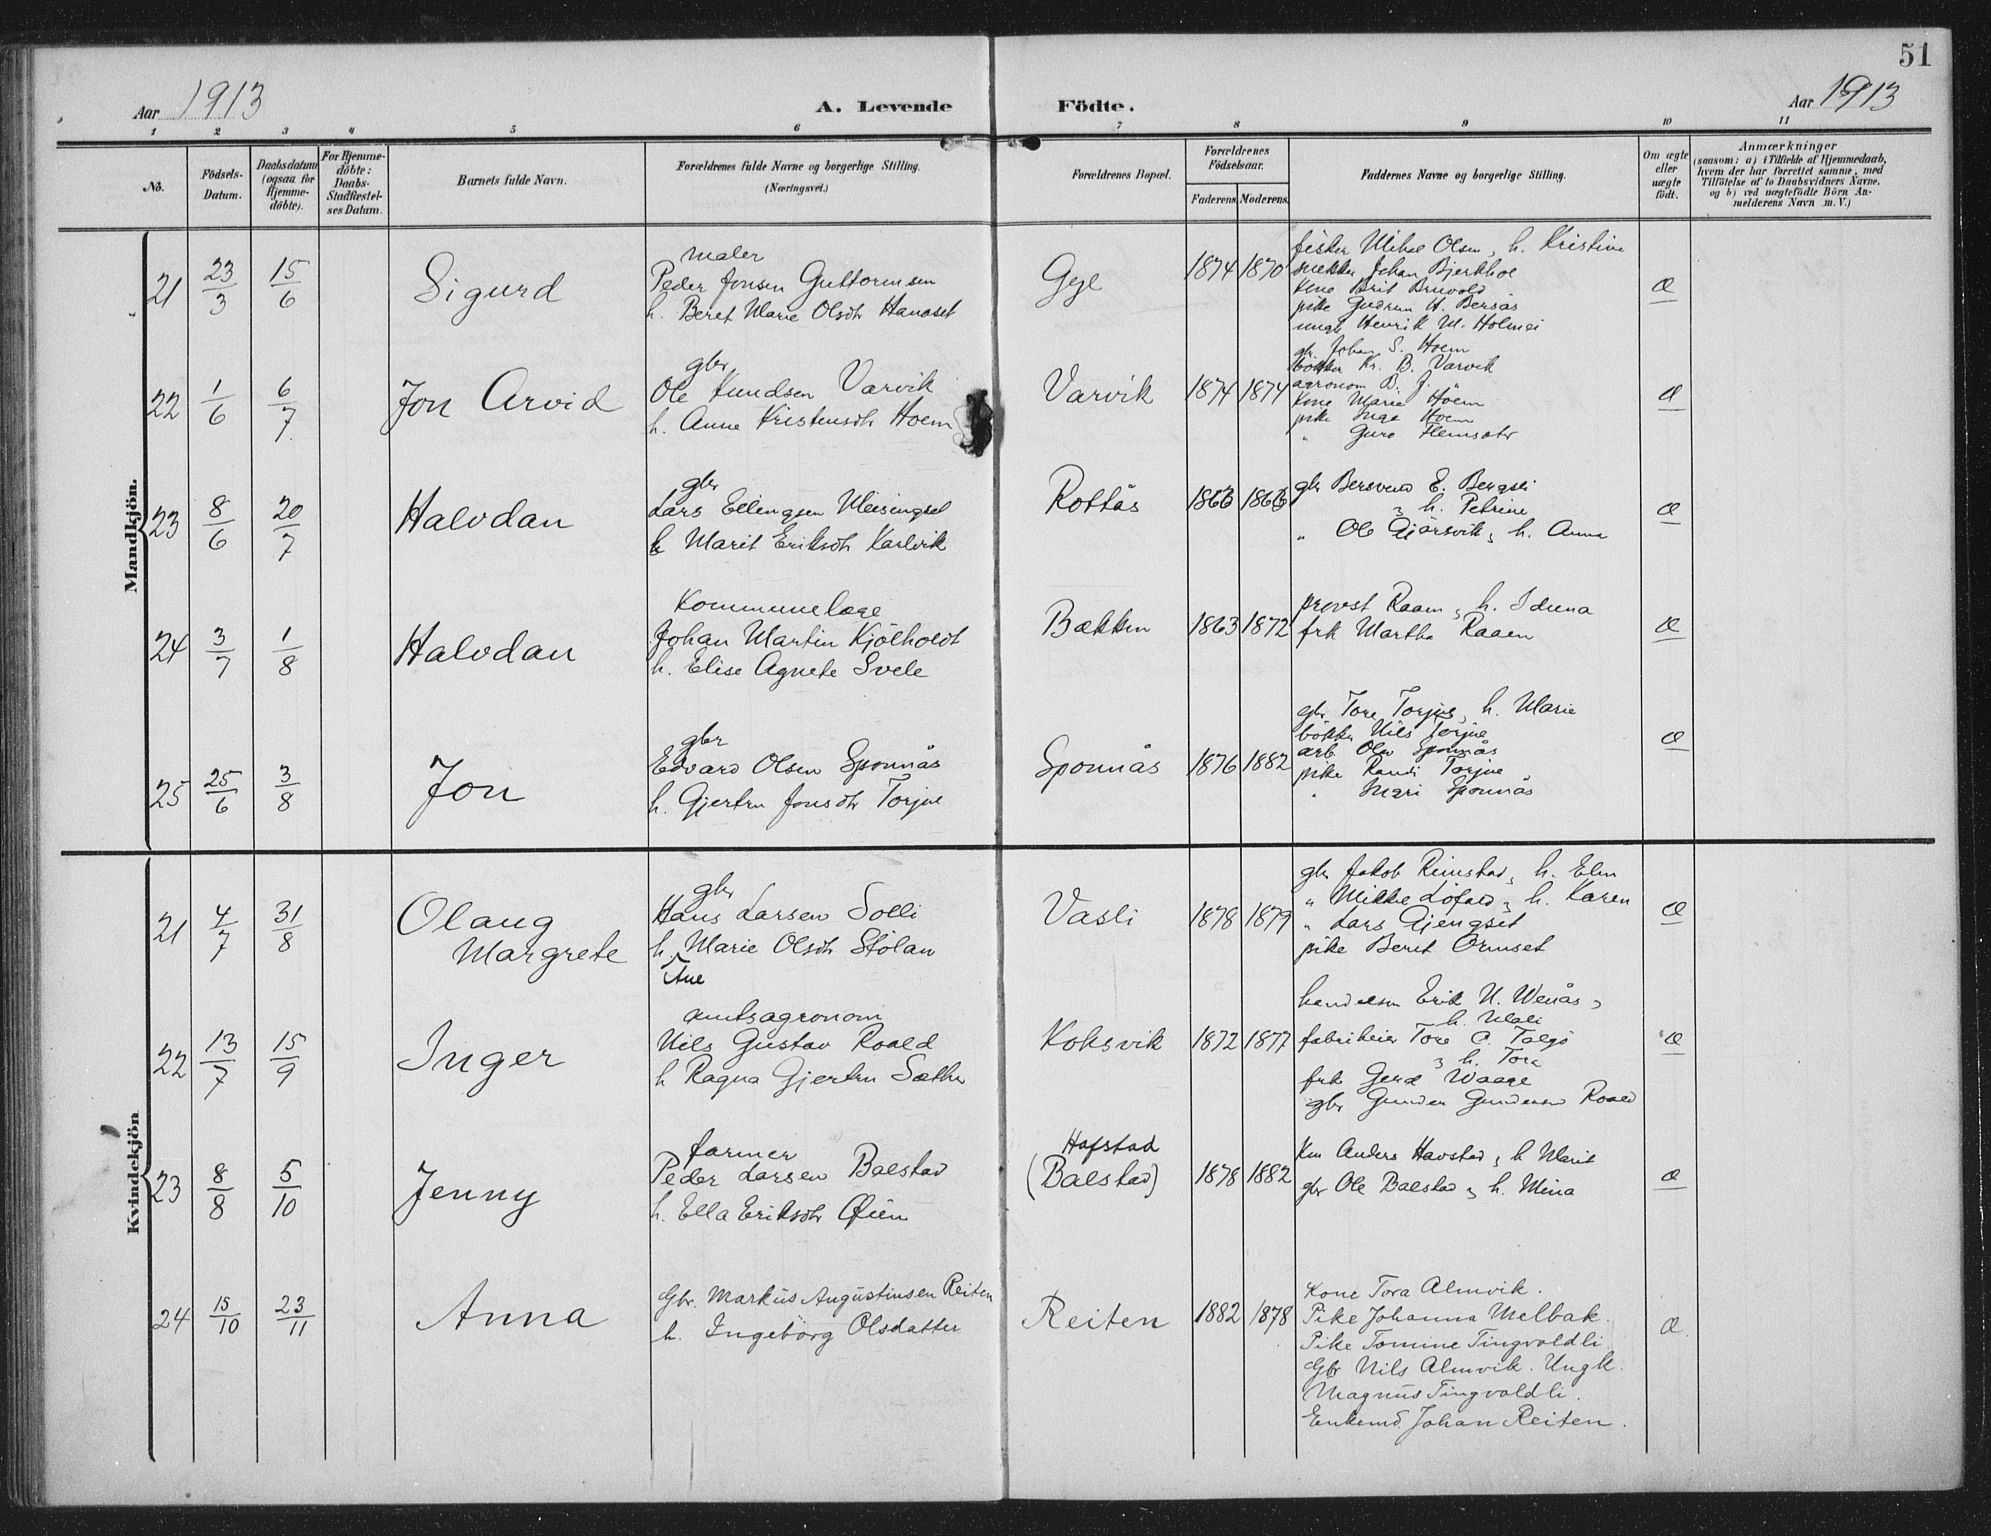 51
Aar 1913
A. Levende Födte.
Aar 1913
1 2 3 4 5 6 7 8 9 10 11
No.
Födsels-Datum.
Daabsdatum (ogsaa for Hjemme-döbte).
For Hjemme-döbte: Daabs-Stadfæstel-ses Datum.
Barnets fulde Navn.
Forældrenes fulde Navne og borgerlige Stilling.
(Næringsvei.)
Forældrenes Bopæl.
Forældrenes Födselsaar.
Faderens. Moderens.
Faddernes Navne og borgerlige Stilling.
Om ægte eller uægte födt.
Anmærkninger
(saasom: a) i Tilfælde af Hjemmedaab,
hvem der har forrettet samme, med
Tilföielse af to Daabsvidners Navne.
og b) ved uægtefödte Börn An-
melderens Navn m. V.)
Mandkjön.
21 23/3 15/6 Sigurd
maler
Peder Jonsen Guttormsen
h. Beret Marie Olsdtr Hanaset
Gyl 1874 1870
fisker Mikal Olsen, h. Kristine
snekker Johan Bjerkhoe
Kone Brit Bruvold
pike Gudrun H. Bersås
ungk Henrik M. Holmei
Æ
22 1/6 6/7 Jon Arvid
gbr
Ole Knudsen Varvik
h. Anne Kristensdtr Hoem
Varvik 1874 1874
gbr. Johan S. Hoem
bökker Kr. B. Varvik
agronom B. J. "
Kone Marie Hoem
pike Inga Hoem
" Guro Flemsætr
Æ
23 8/6 20/7 Halvdan
gbr
Lars Ellingsen Meisingset
h. Marit Eriksdtr Karlvik
Rottås 1866 1866
gbr Bersvend E. Bergsli
h. Petrine
" Ole Gjörsvik, h. Anna
Æ
24 3/7 1/8 Halvdan
Kommunelæge
Johan Martin Kjölholdt
h. Elise Agnete Svele
Bækken 1863 1872
provst Raaen, h. Iduna
frk Martha Raaen
Æ
25 25/6 3/8 Jon
gbr
Edvard Olsen Sponnås
h. Gjertru Jonsdtr Torjue
Sponnås 1876 1882
gbr Tore Torjus, h. Marie
bökker Nils Torjue
arb. Olav Sponnås
pike Randi Torjue
" Mari Sponnås
Æ
Kvindekjön
21 4/7 31/8 Olaug
Margrete
gbr
Hans Larsen Solli
h. Marie Olsdtr Stölan
Ane
Vasli 1878 1879
gbr Jakob Rimstad, h. Elen
" Mikkel Löfald, h. Karen
" Lars Gjengset
pike Beret Ormset
Æ
22 13/7 15/9 Inger
amtsagronom
Nils Gustav Roald
h Ragna Gjertru Sæther
Koksvik 1872 1877
handelsm Erik N. Wenås,
h. Mali
fabrikeier Tore O. Talgö
h. Tora
frk Gerd Waage
gbr Gunder Gundersen Roald
Æ
23 8/8 5/10 Jenny
farmer
Peder Larsen Balstad
h. Ella Eriksdtr Öien
Hafstad
(Balstad) 1878 1882
Km Anders Havstad, h Marit
gbr Ole Balstad, h. Mina
Æ
24 15/10 23/11 Anna
Gbr. Markus Augustinsen Reiten
h. Ingeborg Olsdatter
Reiten 1882 1878
Kone Tora Almvik.
Pike Johanna Melbak.
Pike Tomine Tingvoldli
Gbr Nils Almvik. Ungk.
Magnus Tingvoldli.
Enkemd Johan Reiten.
Æ